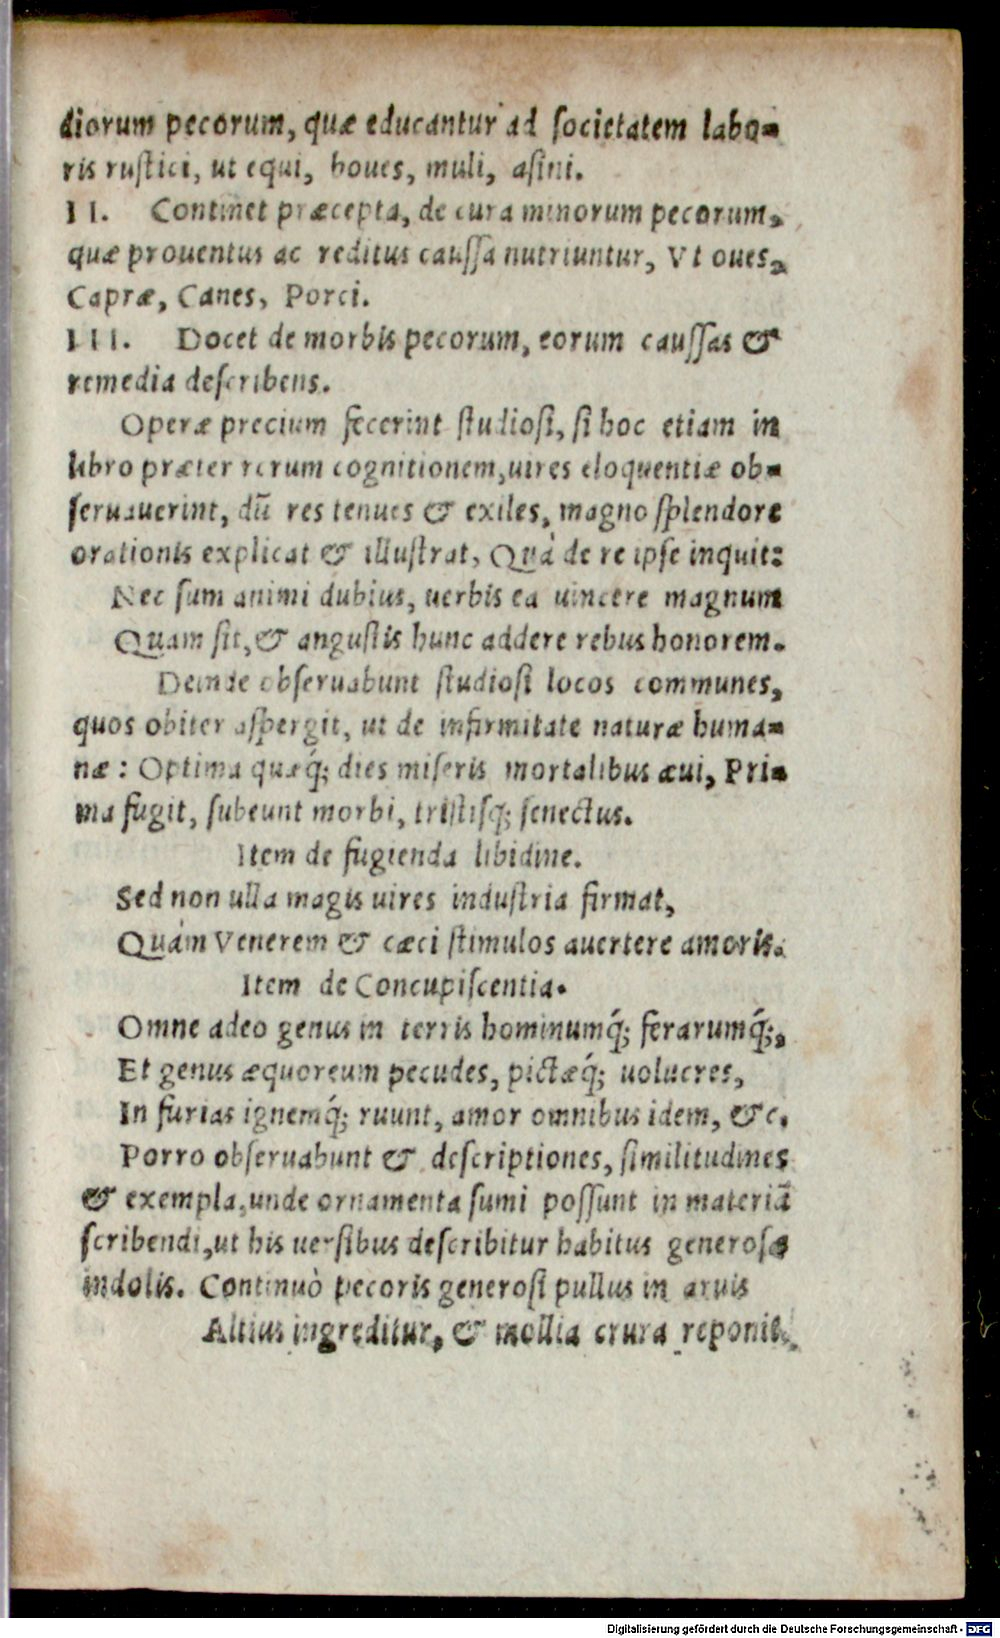 diorum pecorum, quæ educantur ad ſocietatem labo-
ris ruſtici, ut equi, boues, muli, aſini.
II. Continet præcepta, de cura minorum pecorum,
quæ prouentus ac reditus cauſſa nutriuntur, Vt oues,
Capræ, Canes, Porci.
III. Docet de morbis pecorum, eorum cauſſas &
remedia deſcribens.
Operæ precium fecerint ſtudioſi, ſi hoc etiam in
libro præter rerum cognitionem, uires eloquentiæ ob-
ſeruauerint, dū res tenues & exiles, magno ſplendore
orationis explicat & illuſtrat, Quà de re ipſe inquit:
Nec ſum animi dubius, uerbis ea uincere magnum
Quam ſit, & anguſtis hunc addere rebus honorem.
Deinde obſeruabunt ſtudioſi locos communes,
quos obiter aſpergit, ut de infirmitate naturæ huma-
næ: Optima quæq́; dies miſeris mortalibus æui, Pri-
ma fugit, ſubeunt morbi, triſtiſq́; ſenectus.
Item de fugienda libidine.
Sed non ulla magis uires induſtria firmat,
Quàm Venerem & cæci ſtimulos auertere amoris.
Item de Concupiſcentia.
Omne adeo genus in terris hominumq́; ferarumq́;,
Et genus æquoreum pecudes, pictæq́; uolucres,
In furias ignemq́; ruunt, amor omnibus idem, &c.
Porro obſeruabunt & deſcriptiones, ſimilitudines
& exempla, unde ornamenta ſumi poſſunt in materiā
ſcribendi, ut his uerſibus deſcribitur habitus generoſæ
indolis. Continuò pecoris generoſi pullus in aruis
Altius ingreditur, & mollia crura reponit.
Digitalisierung gefördert durch die Deutsche Forschungsgemeinschaft - DFG